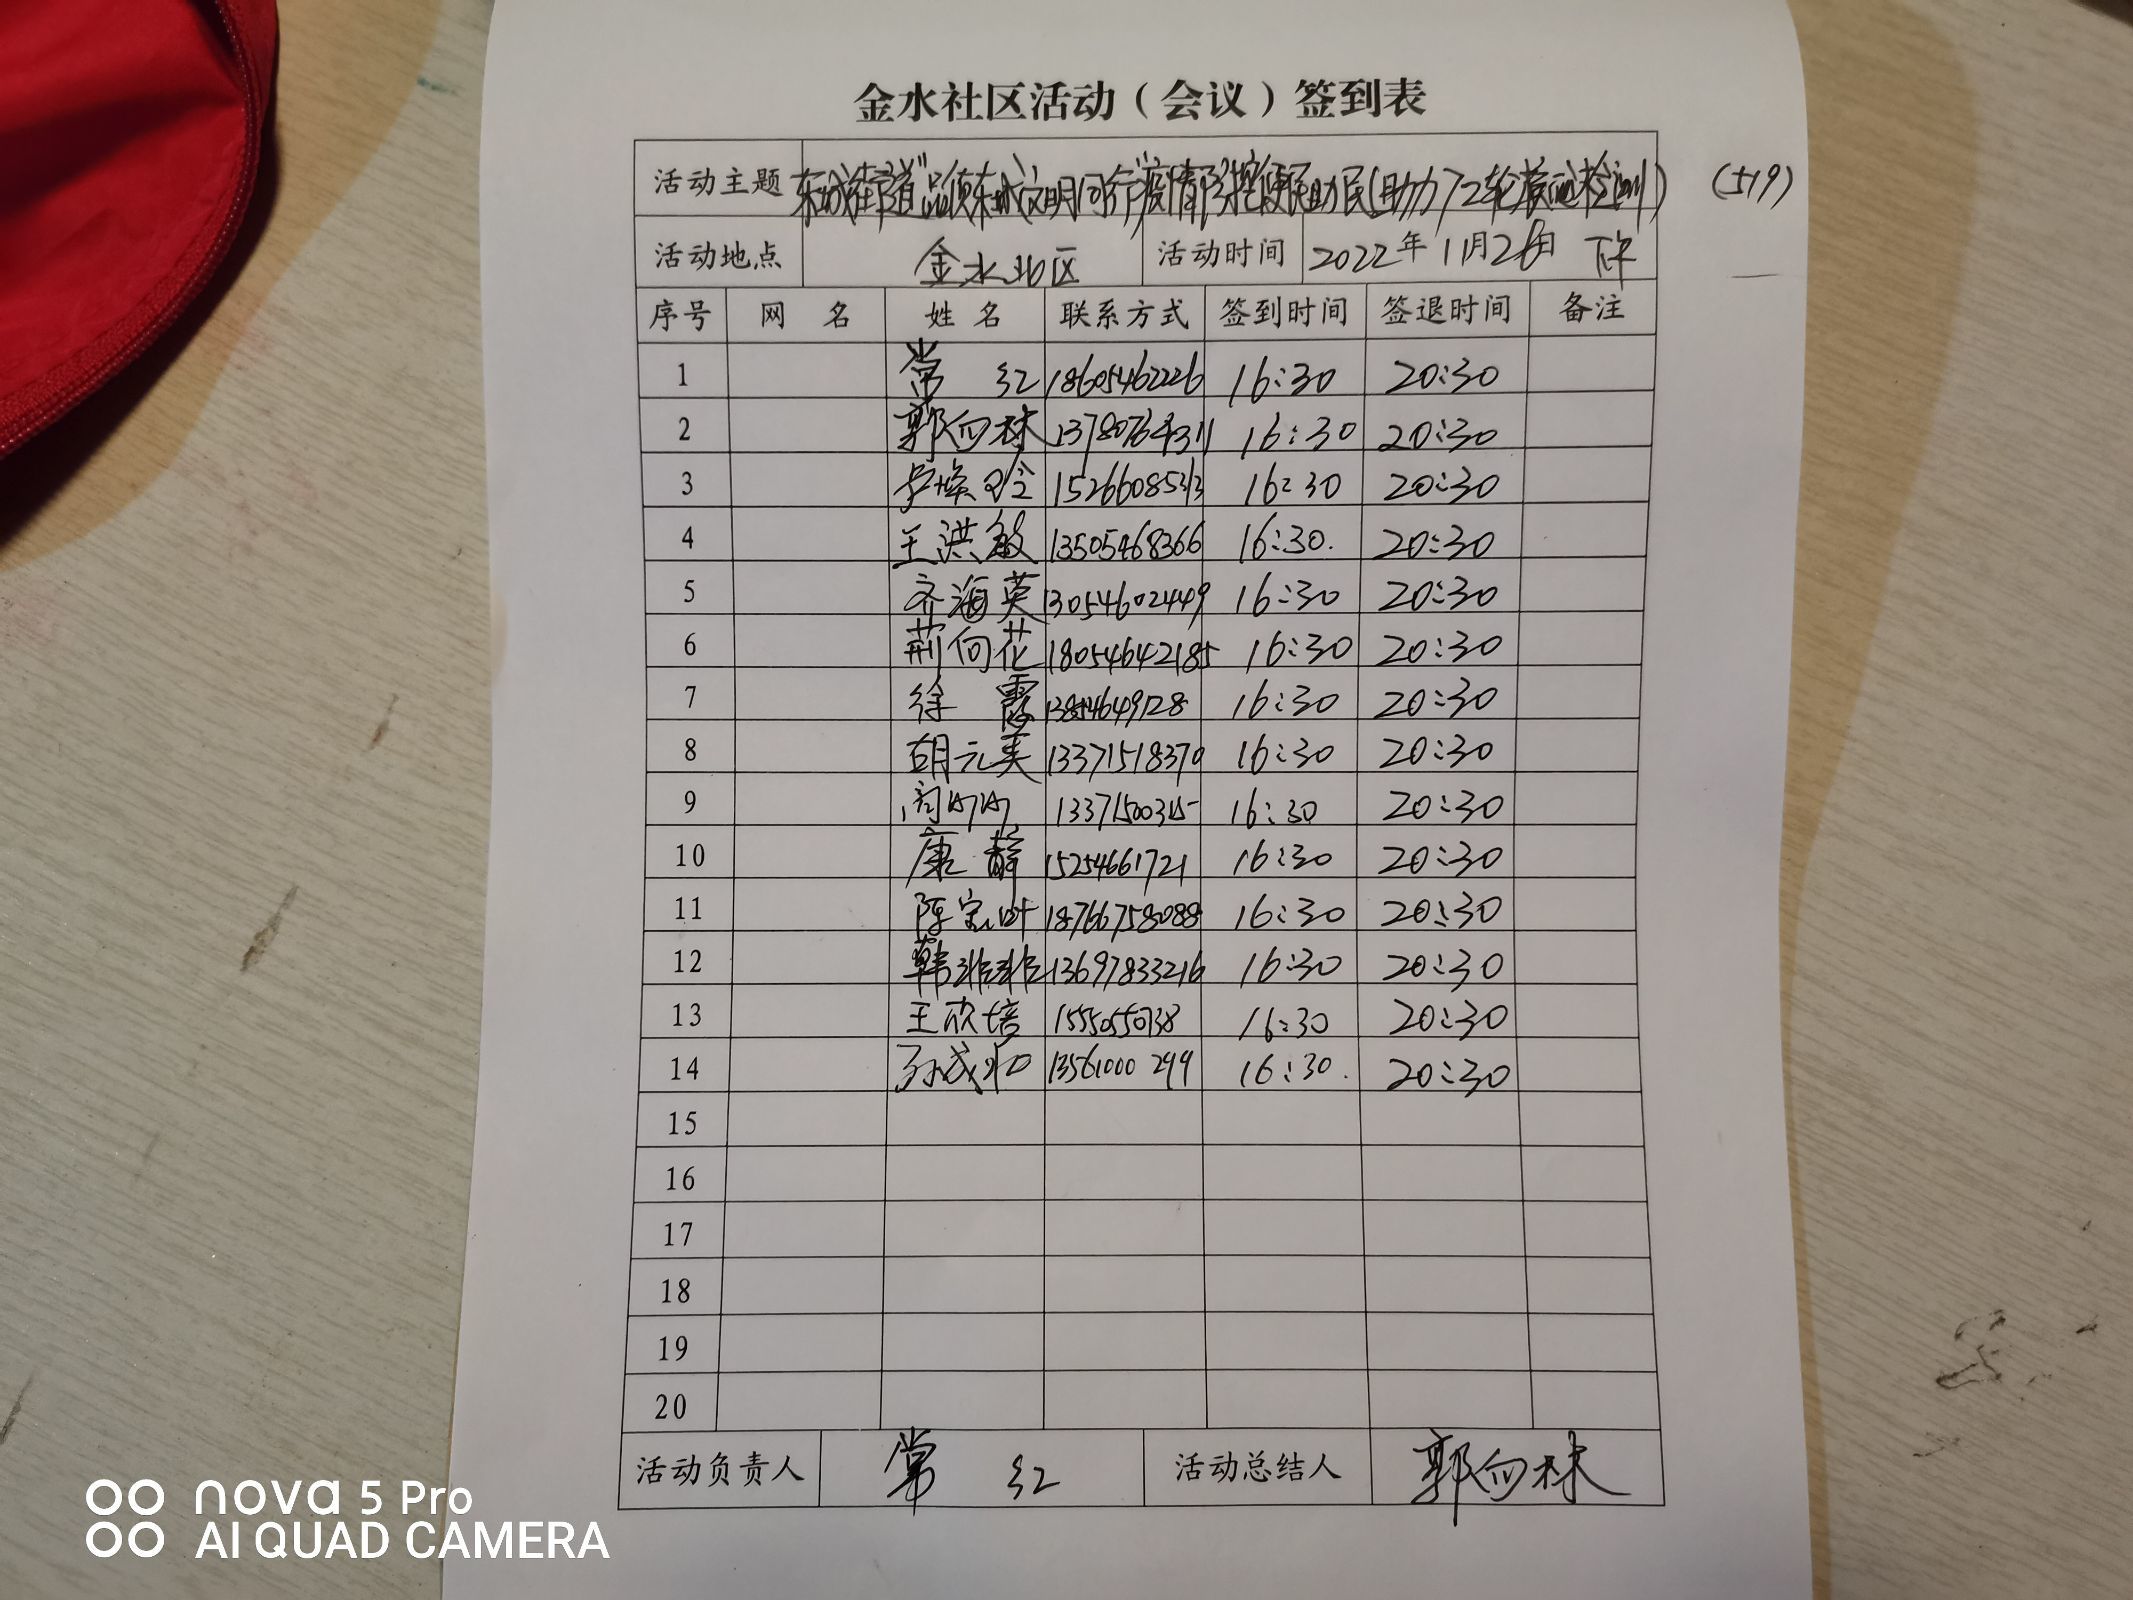 金水社区活动（会议）签到表
活动主题 东城街道"品质东城文明同行"疫情防控便民助民(助力72轮核酸检测) (519)
活动地点 金水北区 活动时间 2022年11月26日 下午
序号 网 名 姓 名 联系方式 签到时间 签退时间 备注
1 常 红 18605462226 16:30 20:30
2 郭向林 13780764311 16:30 20:30
3 15266085313 16:30 20:30
4 王洪敏 13505468366 16:30. 20:30
5 齐海英 13054602449 16:30 20:30
6 荆向花 18054642185 16:30 20:30
7 徐 霞 16:30 20:30
8 胡元美 13371518370 16:30 20:30
9 13371500315 16:30 20:30
10 康 静 15254661721 16:30 20:30
11 陈宝叶 18766758088 16:30 20:30
12 韩非非 13697833216 16:30 20:30
13 王欣培 15550550738 16:30 20:30
14 13561000299 16:30. 20:30
15
16
17
18
19
20
活动负责人 常 红 活动总结人 郭向林
nova 5 Pro
AI QUAD CAMERA